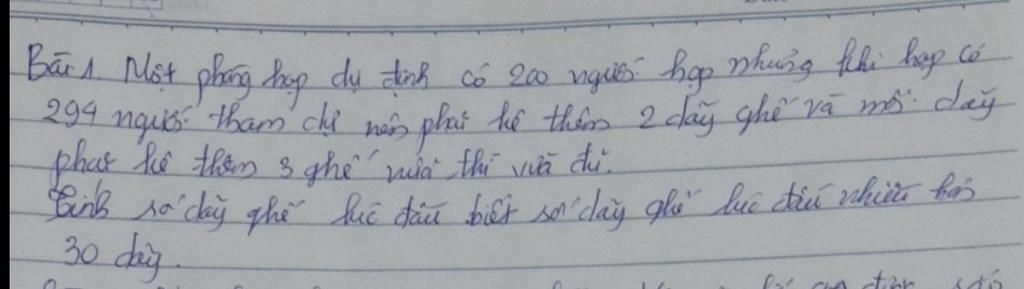 Bài 1 Một phòng họp dự định có 200 người họp nhưng khi họp có
294 người tham dự nên phải kê thêm 2 dãy ghế và mỗi dãy
phải kê thêm 3 ghế nữa thì vừa đủ.
Tính số dãy ghế lúc đầu biết số dãy ghế lúc đầu nhiều hơn
30 dãy.